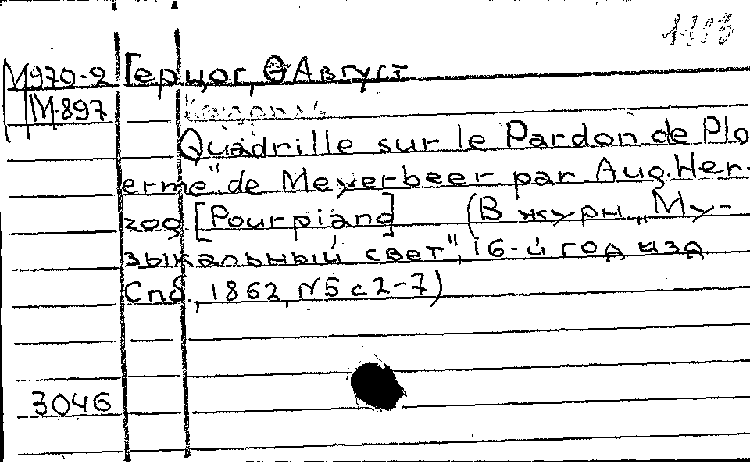 1113
М970-2 Герцог, Август
М-897
Quadrille sur le Pardon de Plo
erme" de Meyerbeer par Aug. Her-
zog [Pour piano] (В журн. „Му-
зыкальный свет", 16-й год изд
Спб., 1862, №5 с 2-7)
3046